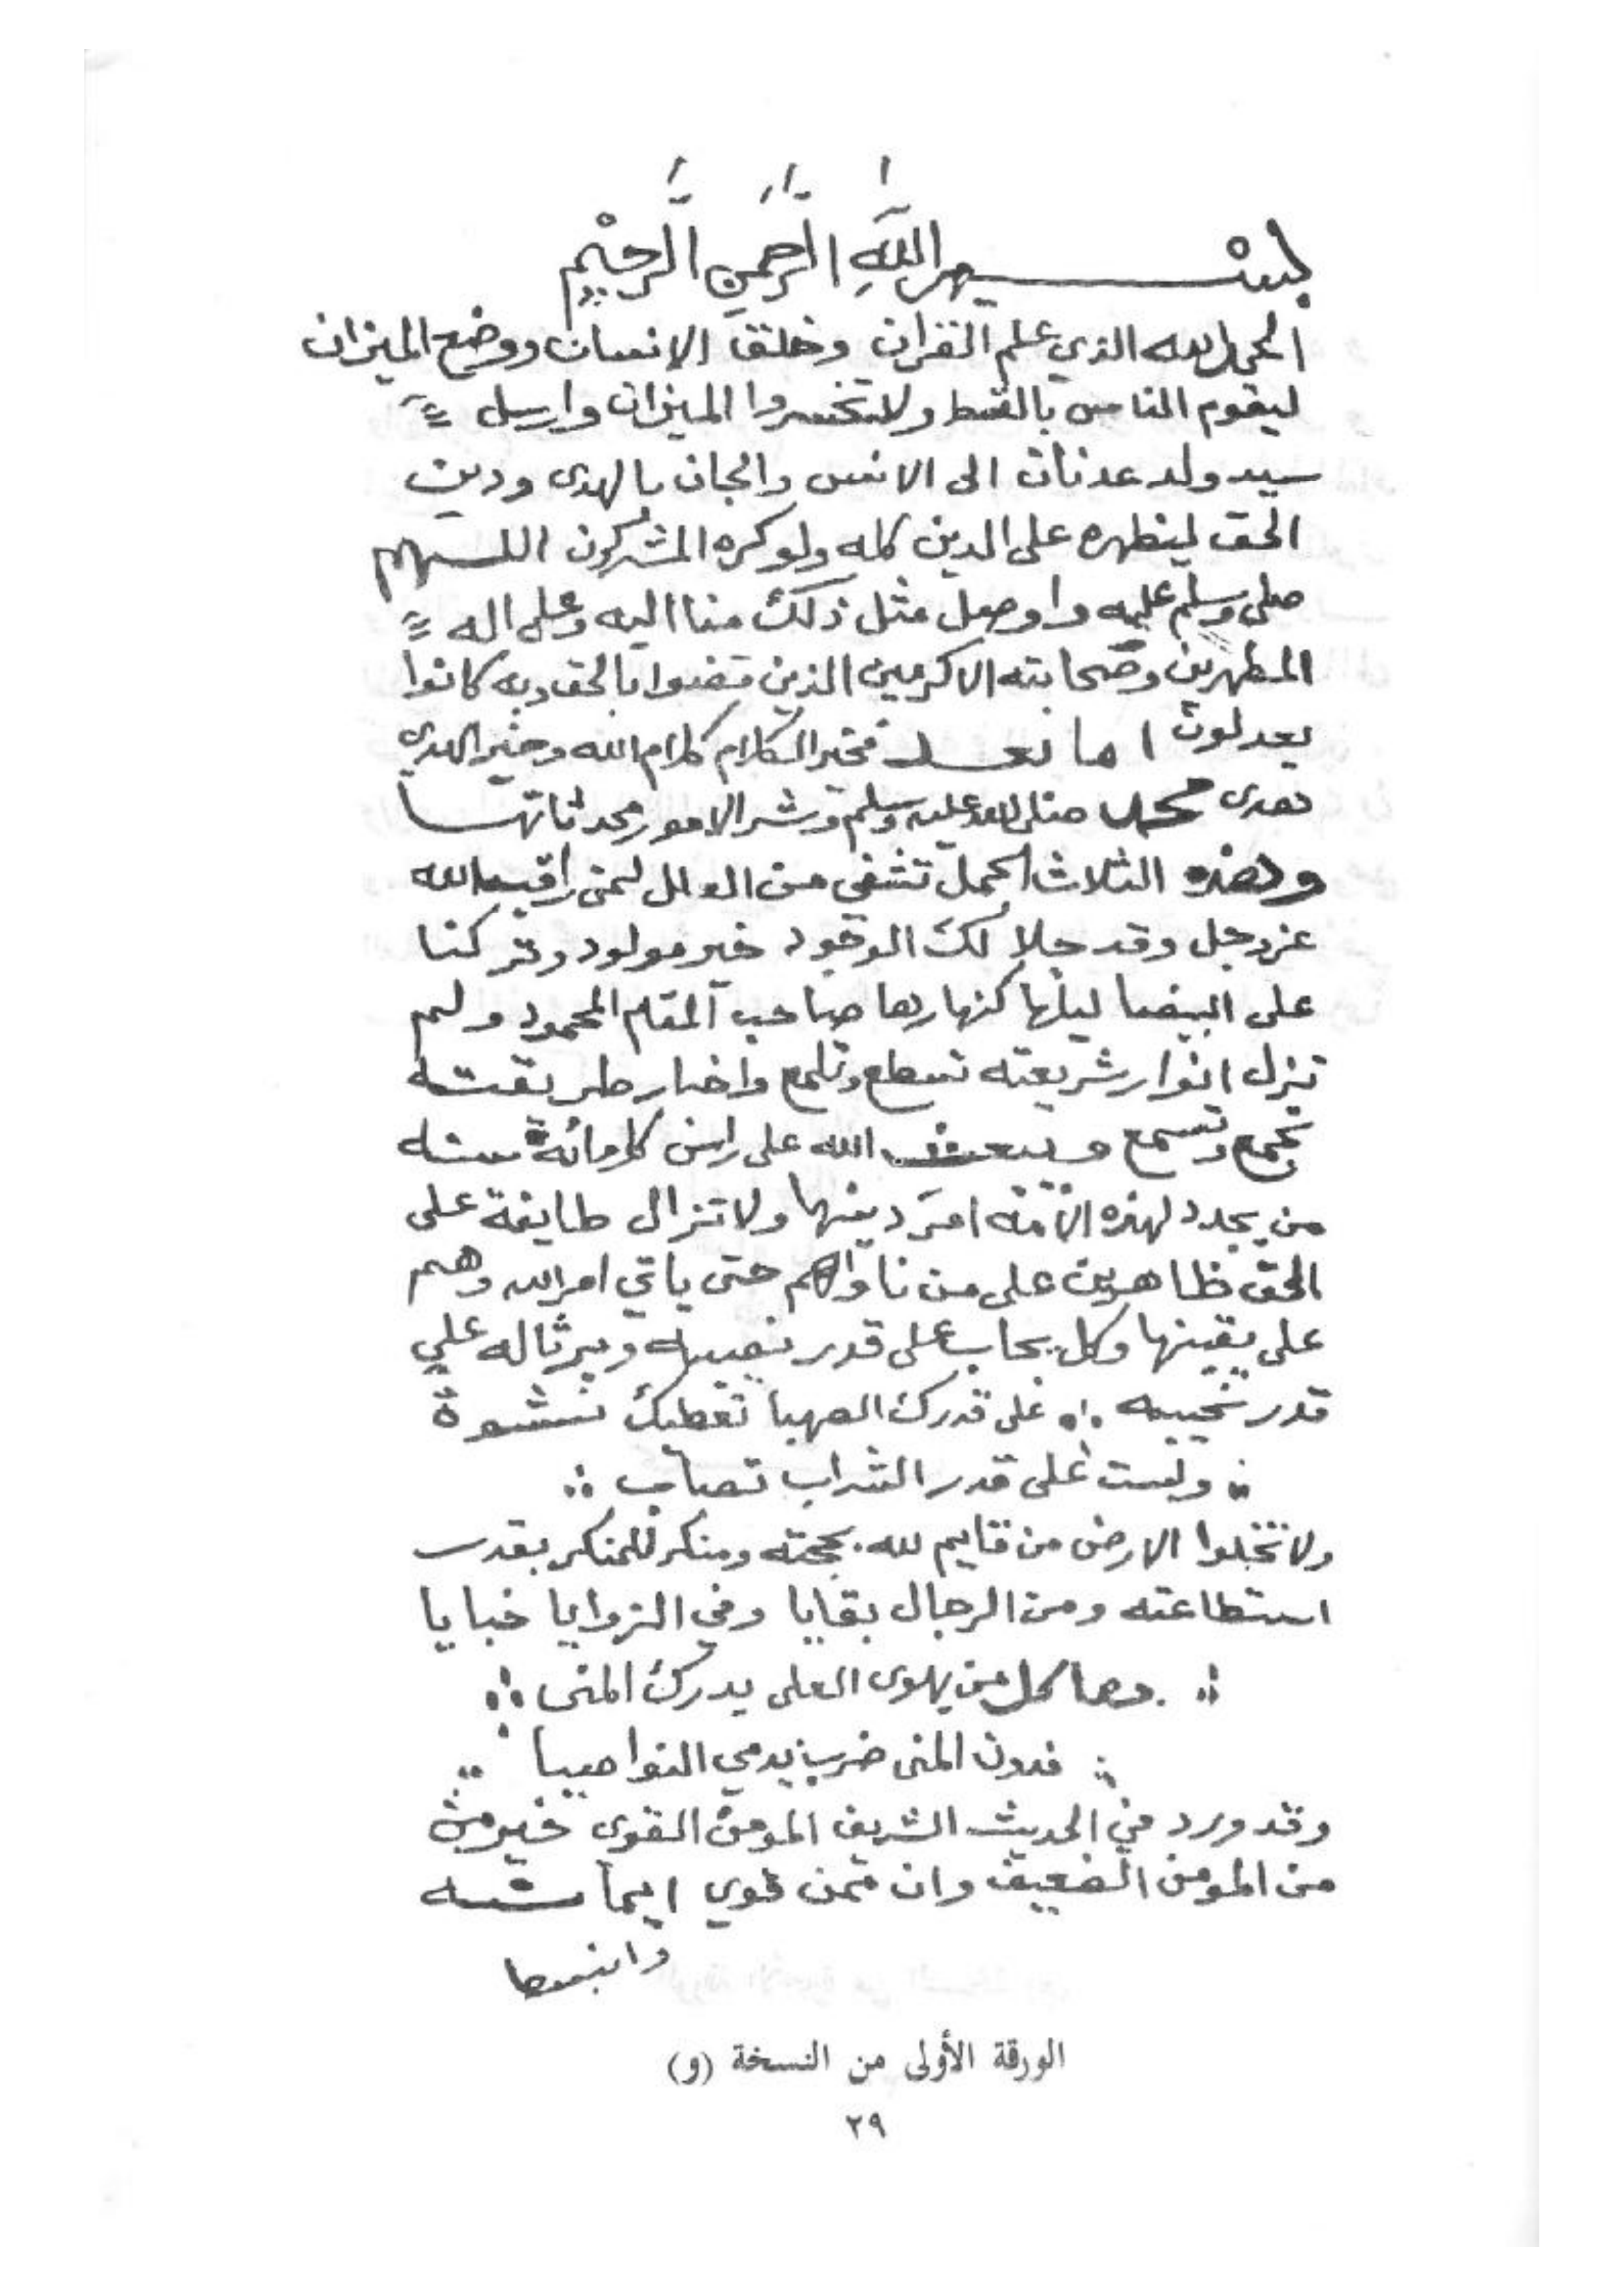 بسم الله الرحمن الرحيم
الحمد لله الذي علم القران وخلق الانسان ووضع الميزان
ليقوم الناس بالقسط ولا تخسروا الميزان وارسل
سيد ولد عدنان الى الانس والجان بالهدى ودين
الحق ليظهره على الدين كله ولو كره المشركون اللهم
صلى وسلم عليه واوصل مثل ذلك منا اليه وعلى اله
المطهرين وصحابته الاكرمين الذين قضوا بالحق وبه كانوا
يعدلون اما بعد فخير الكلام كلام الله وخير الهدي
هدى محمد صلى الله عليه وسلم وشر الامور محدثاتها
وهذه الثلاث الجمل تشفي من العلل لمن راقب الله
عز وجل وقد جلا لك الوجود خير مولود وتركنا
على البيضا ليلها كنهارها صاحب المقام المحمود ولم
تزل انوار شريعته تسطع وتلمع واخبار طريقته
تجمع وتسمع ويبعث الله على راس كل مائة سنه
من يجدد لهذه الامه امر دينها ولا تزال طايفة على
الحق ظاهرين على من ناواهم حتى ياتي امر الله وهم
على يقينها وكل يجاب على قدر نصيبه ويرثا له علي
قدر نحيبه على قدرك الصهبا تعطيك نشوة
وليست على قدر الشراب تصاب
ولا تخلوا الارض من قايم لله بحجته ومنكر للمنكر بقدر
استطاعته ومن الرجال بقايا وفي الزوايا خبايا
وما كل من يهوى العلى يدرك المنى
فدون المنى ضرب يدمي النواصيا
وقد ورد في الحديث الشريف المومن القوى خير من
من المومن الضعيف وان ممن قوي ايمانه
الورقة الأولى من النسخة (و)
٢٩